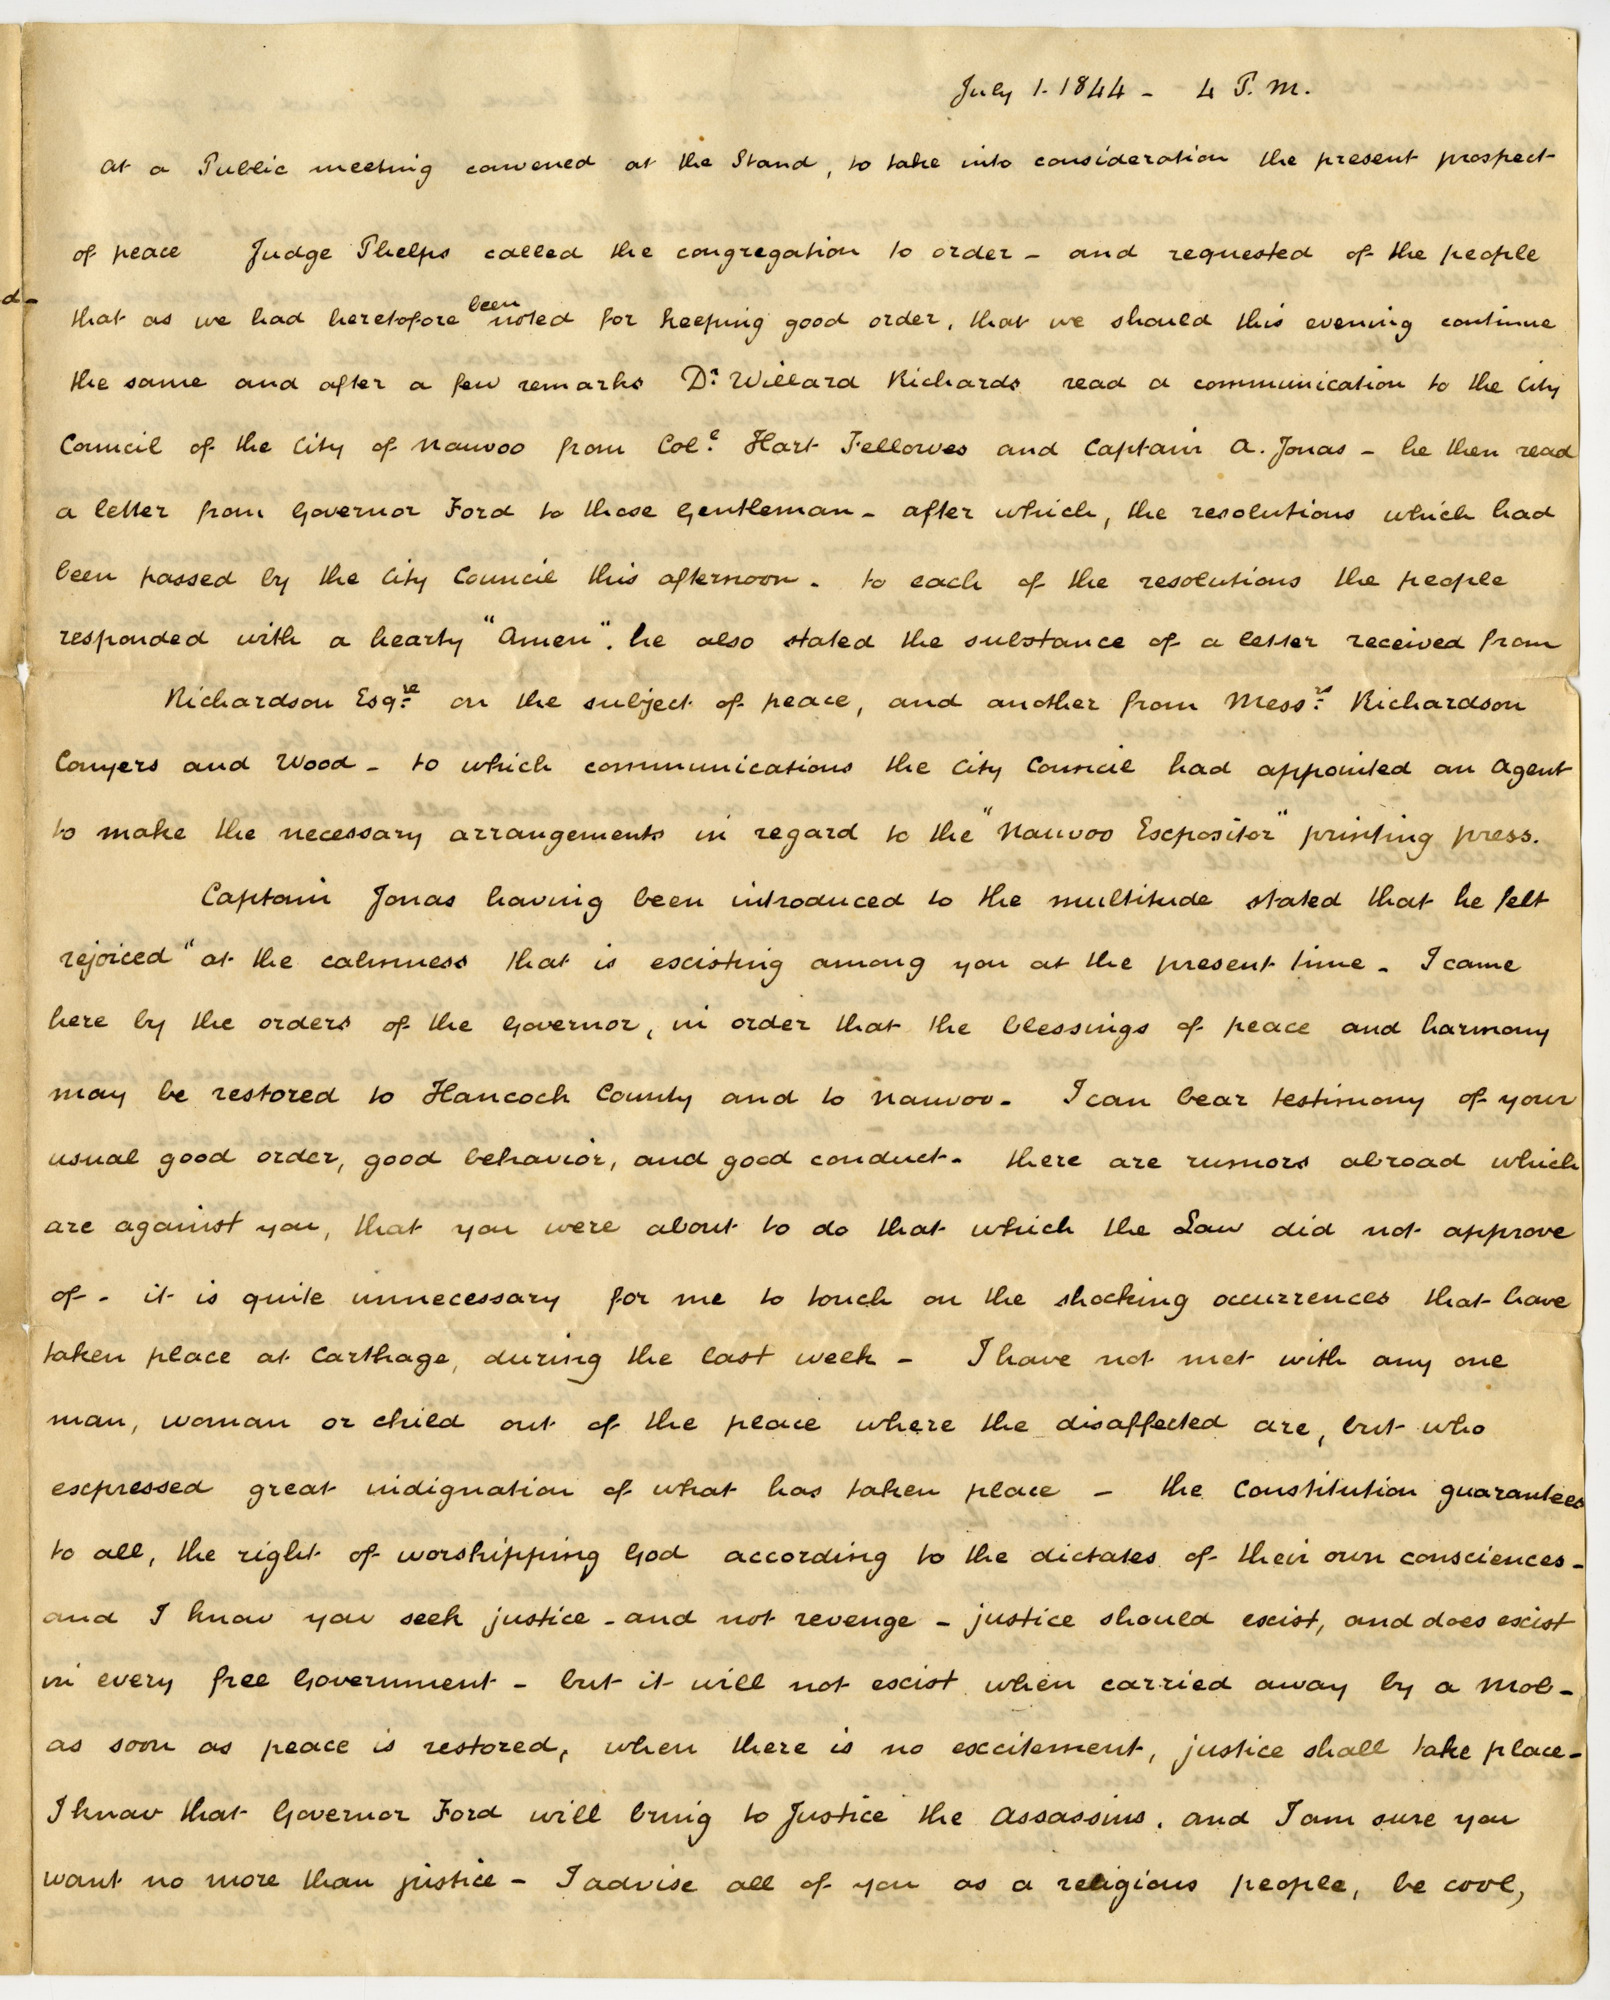 July 1. 1844 - 4 P.M.
At a Public meeting convened at the Stand, to take into consideration the present prospect
of peace Judge Phelps called the congregation to order - and requested of the people
d-
that as we had heretofore been noted for keeping good order, that we should this evening continue
the same and after a few remarks Dr. Willard Richards read a communication to the City
Council of the City of Nauvoo from Col.e Hart Fellows and Captain A. Jonas - he then read
a letter from Governor Ford to those Gentleman - after which, the resolutions which had
been passed by the City Council this afternoon - to each of the resolutions the people
responded with a hearty "Amen". he also stated the substance of a letter received from
Richardson Esqre. on the subject of peace, and another from Messrs. Richardson
Conyers and Wood - to which communications the City Council had appointed an Agent
to make the necessary arrangements in regard to the "Nauvoo Expositor" printing press.
Captain Jonas having been introduced to the multitude stated that he felt
rejoiced "at the calmness that is existing among you at the present time - I came
here by the orders of the Governor, in order that the blessings of peace and harmony
may be restored to Hancock County and to Nauvoo - I can bear testimony of your
usual good order, good behavior, and good conduct - there are rumors abroad which
are against you, that you were about to do that which the Law did not approve
of - it is quite unnecessary for me to touch on the shocking occurrences that have
taken place at Carthage, during the last week - I have not met with any one
man, woman or child out of the place where the disaffected are, but who
expressed great indignation of what has taken place - the Constitution guarantees
to all, the right of worshipping God according to the dictates of their own consciences -
and I know you seek justice - and not revenge - justice should exist, and does exist
in every free Government - but it will not exist when carried away by a Mob -
as soon as peace is restored, when there is no excitement, justice shall take place -
I know that Governor Ford will bring to Justice the Assassins, and I am sure you
want no more than justice - I advise all of you as a religious people, be cool,